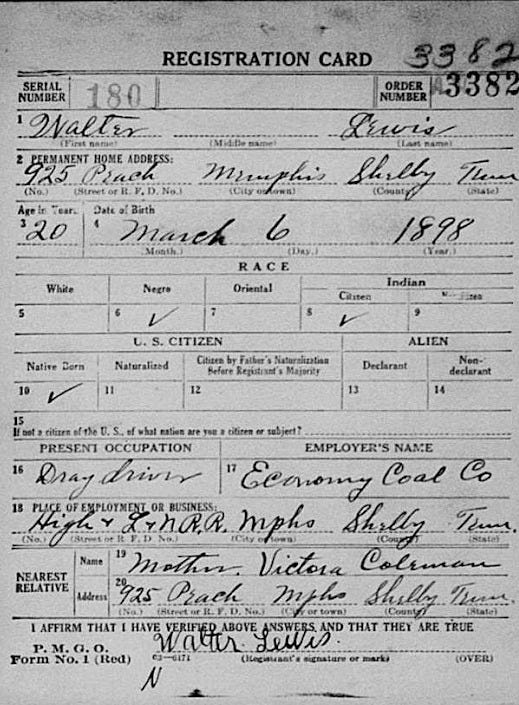 REGISTRATION CARD 3382
SERIAL NUMBER 180 ORDER NUMBER A3382
1 Walter Lewis
(First name) (Middle name) (Last name)
2 PERMANENT HOME ADDRESS:
925 Peach Memphis Shelby Tenn
(No.) (Street or R. F. D. No.) (City or town) (County) (State)
Age in Years Date of Birth
3 20 4 March 6 1898
(Month.) (Day.) (Year.)
RACE
White Negro Oriental Indian
Citizen
5 6 ✓ 7 8 ✓ 9
U. S. CITIZEN ALIEN
Native Born Naturalized Citizen by Father's Naturalization Before Registrant's Majority Declarant Non-declarant
10 ✓ 11 12 13 14
15
If not a citizen of the U. S., of what nation are you a citizen or subject?
PRESENT OCCUPATION EMPLOYER'S NAME
16 Dray driver 17 Economy Coal Co
18 PLACE OF EMPLOYMENT OR BUSINESS:
High + L+N R.R. Mphs Shelby Tenn.
(No.) (Street or R. F. D. No.) (City or town) (County) (State)
NEAREST RELATIVE
Name 19 Mother Victora Coleman
Address 20 925 Peach Mphs Shelby Tenn.
(No.) (Street or R. F. D. No.) (City or town) (County) (State)
I AFFIRM THAT I HAVE VERIFIED ABOVE ANSWERS AND THAT THEY ARE TRUE
P. M. G. O. Walter Lewis.
Form No. 1 (Red) 03-6171 (Registrant's signature or mark) (OVER)
N